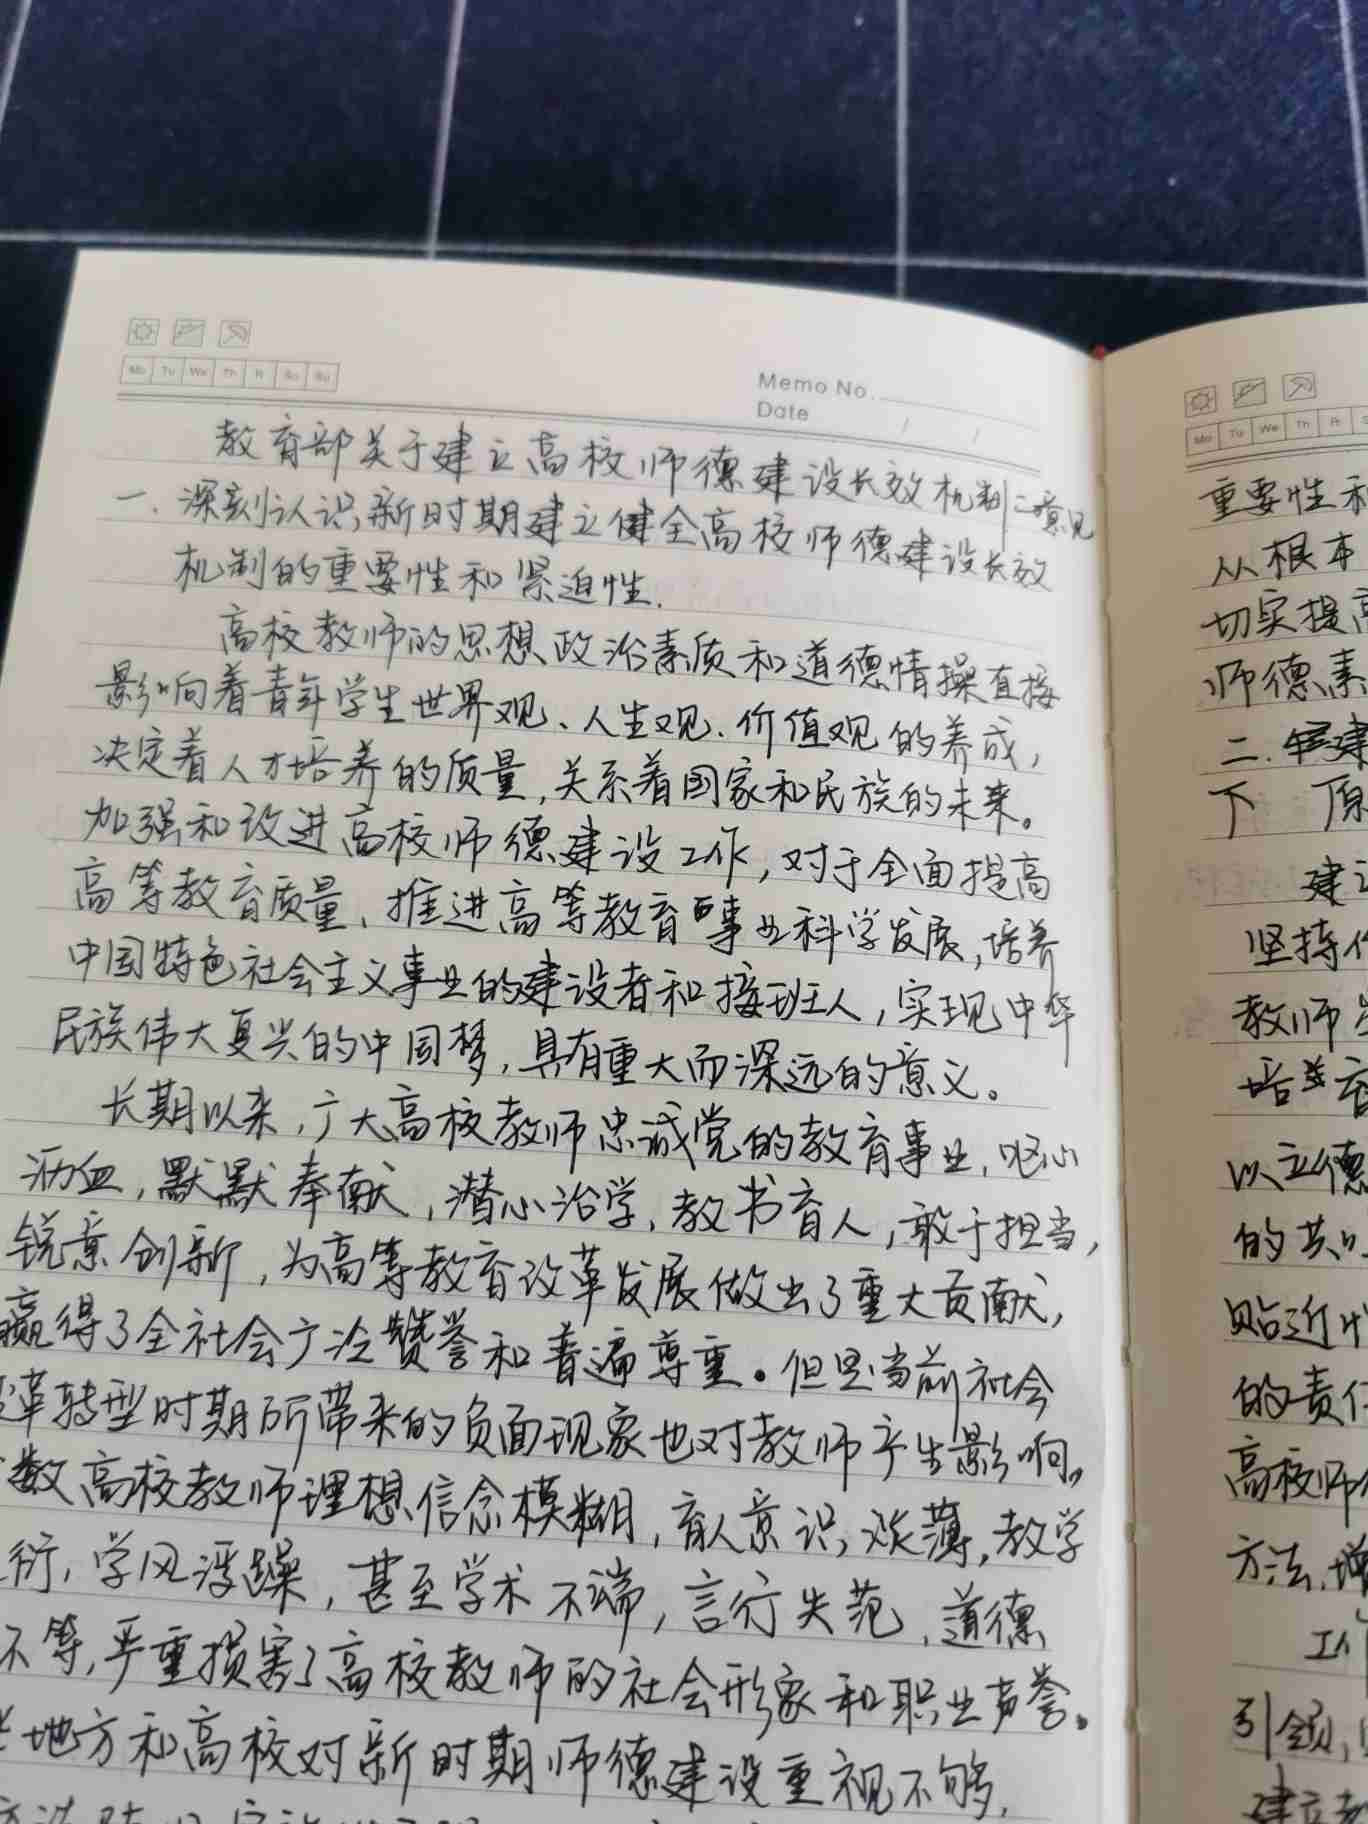 Mo Tu We Th Fr Sa Su
Memo No.
Date / /
教育部关于建立高校师德建设长效机制意见
一.深刻认识新时期建立健全高校师德建设长效
机制的重要性和紧迫性.
高校教师的思想政治素质和道德情操直接
影响着青年学生世界观、人生观、价值观的养成,
决定着人才培养的质量,关系着国家和民族的未来。
加强和改进高校师德建设工作,对于全面提高
高等教育质量、推进高等教育事业科学发展,培养
中国特色社会主义事业的建设者和接班人,实现中华
民族伟大复兴的中国梦,具有重大而深远的意义。
长期以来,广大高校教师忠诚党的教育事业,呕心
沥血,默默奉献,潜心治学,教书育人,敢于担当,
锐意创新,为高等教育改革发展做出了重大贡献,
赢得了全社会广泛赞誉和普遍尊重。但是当前社会
革转型时期所带来的负面现象也对教师产生影响。
数高校教师理想信念模糊,育人意识淡薄,教学
衍,学风浮躁,甚至学术不端,言行失范,道德
不等,严重损害了高校教师的社会形象和职业声誉。
地方和高校对新时期师德建设重视不够,
Mo Tu We Th Fr
重要性和
从根本
切实提高
师德素
二.建
下 原
建设
坚持
教师
培
以立德
的共
贴近
的责任
高校师
方法,增
工作
引领,
建立